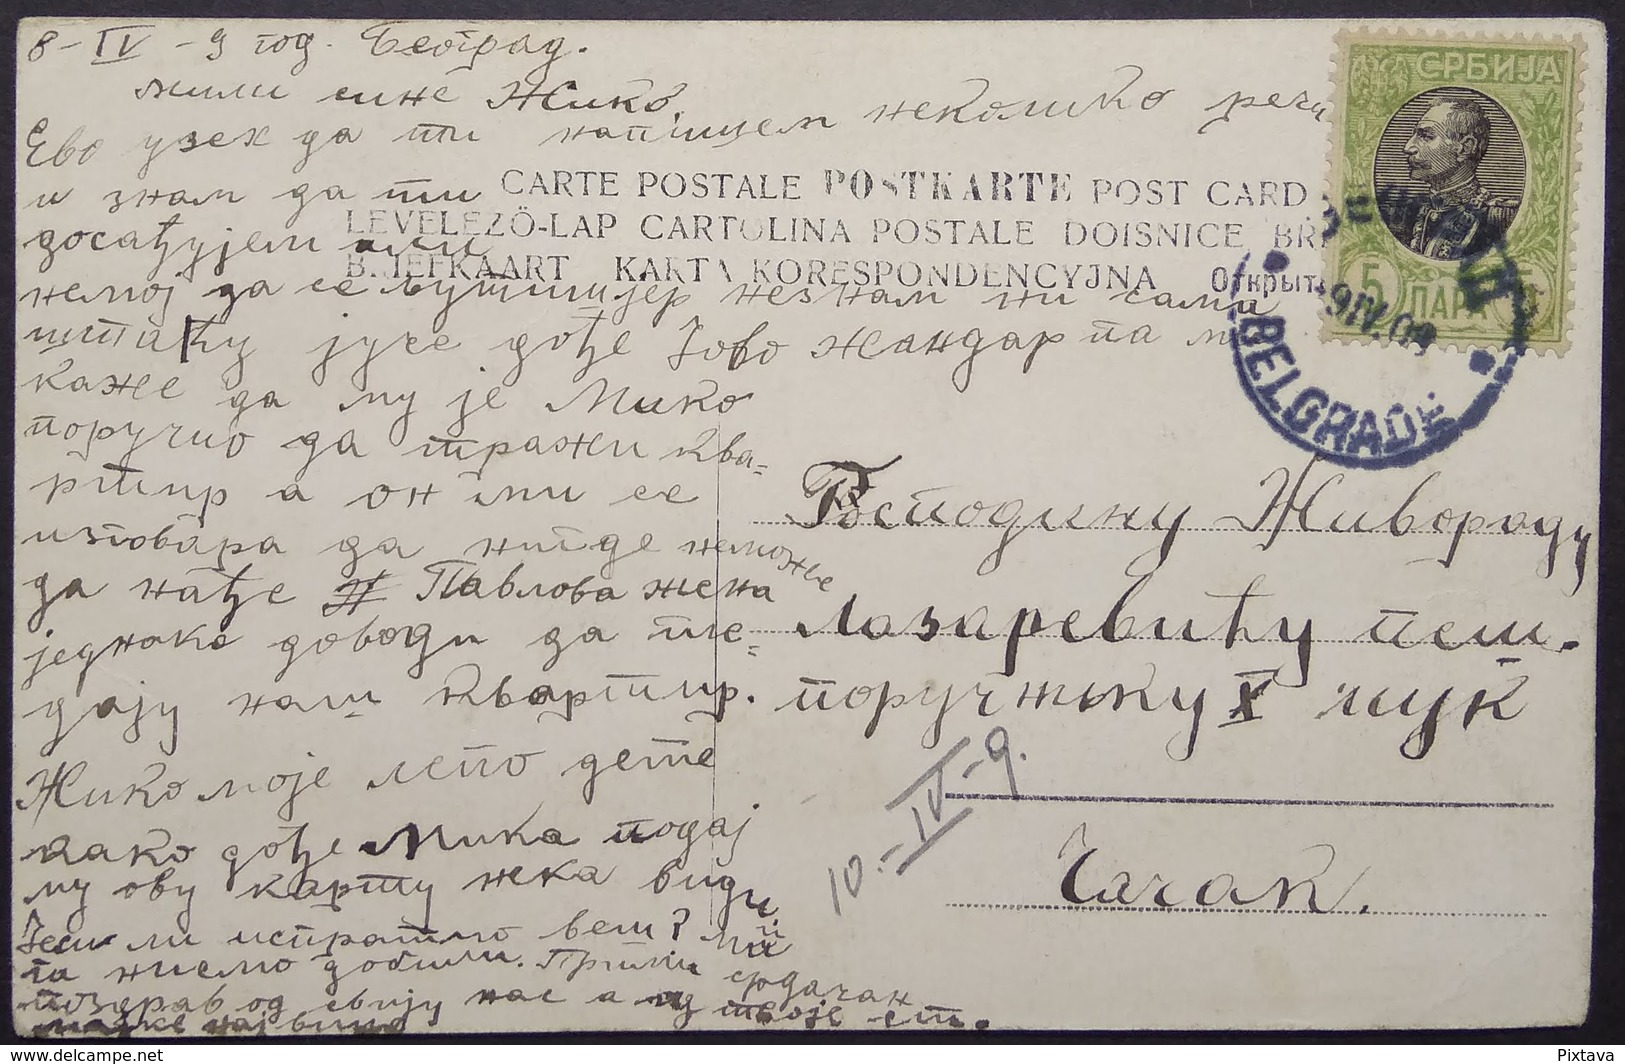 8-IV-9 год. Београд.
мили сине Жико,
Ево узех да ти напишем неколико речи
и знам да ти
досађујем али
немој да се љутиш јер незнам ни сама
шта ћу јуче дође Јово жандар па м
каже да му је Мико
поручио да тражи ква=
ртир а он ми се
изговара да нигде неможе
да нађе Павлова жена
једнако доводи да гле=
дају наш квартир.
Жико моје лепо дете
како дође Мика подај
му ову карту нека види
Јеси ли испратио веш? ми
га нисмо добили. Прими срдачан
поздрав од свију нас а од твоје ст.
мајке највише
CARTE POSTALE POSTKARTE POST CARD
LEVELEZÖ-LAP CARTOLINA POSTALE DOISNICE BR
BRIEFKAART KARTA KORESPONDENCYJNA Открыт
СРБИЈА
5 ПАРА 5
9 IV. 09
BELGRADE
Господину Живораду
Лазаревићу пеш.
поручнику X пук
Чачак.
10.-IV-9.
Pixtava